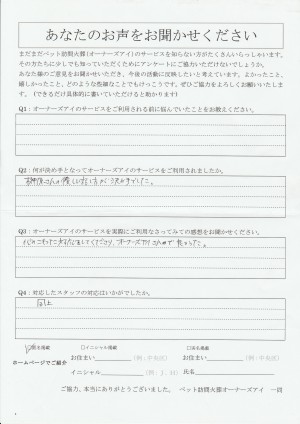 あなたのお声をお聞かせください
まだまだペット訪問火葬(オーナーズアイ)のサービスを知らない方がたくさんいらっしゃいます。
その方たちに少しでも知っていただくためにアンケートにご協力いただけないでしょうか。
あなた様のご意見をお聞かせいただき、今後の活動に反映したいと考えています。よかったこと、
嬉しかったこと、どのような些細なことでもけっこうです。ぜひご協力をよろしくお願いいたしま
す。（できるだけ具体的に書いていただけると助かります）
Q1：オーナーズアイのサービスをご利用される前に悩んでいたことをお教えください。
Q2：何が決め手となってオーナーズアイのサービスをご利用されましたか。
Q3：オーナーズアイのサービスを実際にご利用なさってみての感想をお聞かせください。
オーナーズアイさんで良かった。
Q4：対応したスタッフの対応はいかがでしたか。
同上
匿名掲載 □イニシャル掲載 □実名掲載
ホームページでご紹介
お住まい (例：中央区) お住まい (例：中央区)
イニシャル (例：J．M) 氏名
ご協力、本当にありがとうございました。 ペット訪問火葬オーナーズアイ 一同